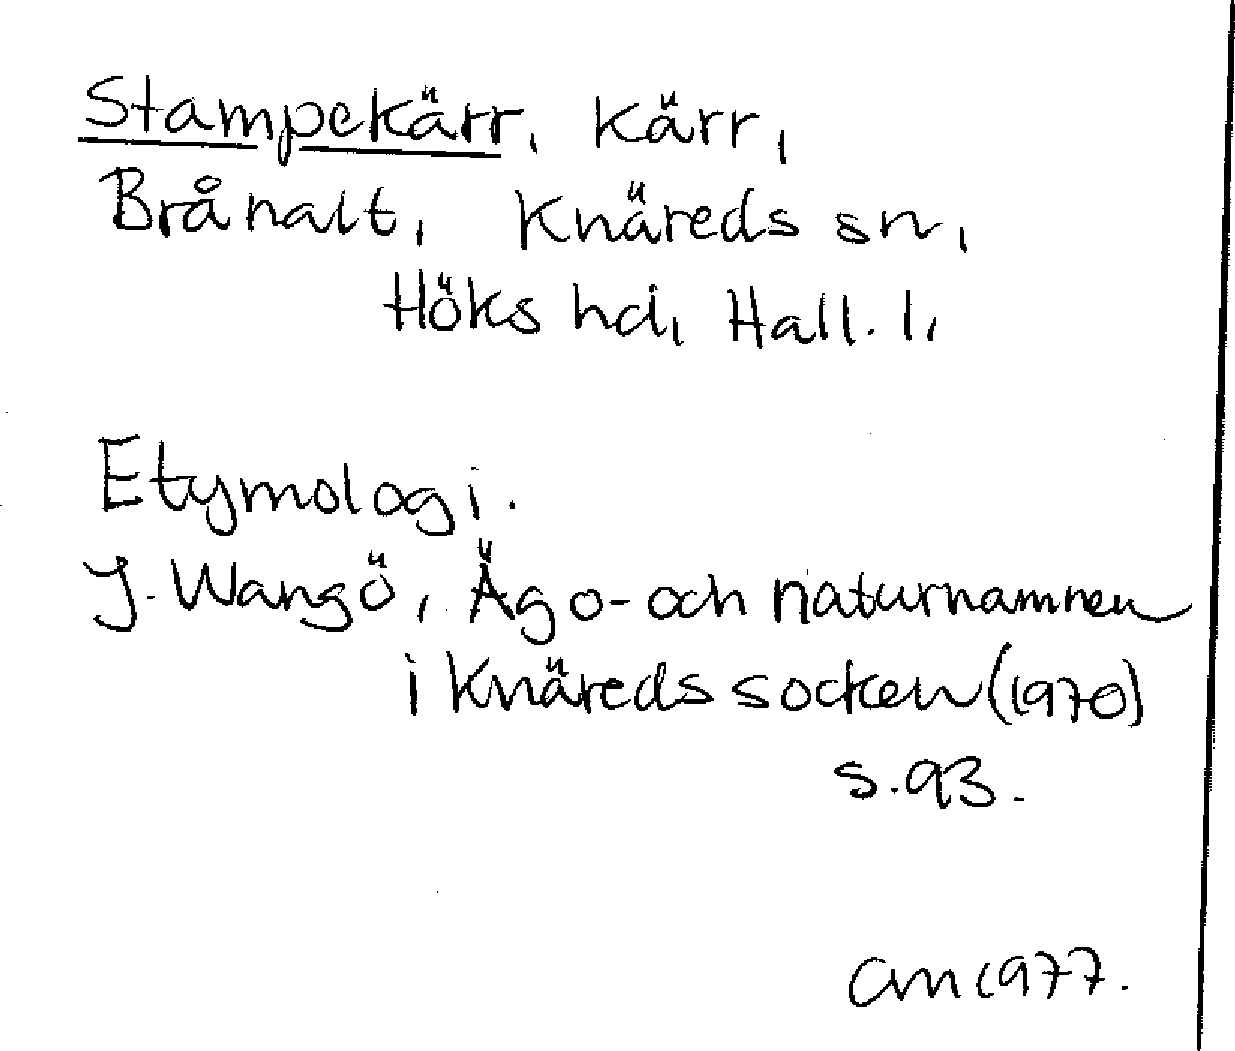 Stampekärr, kärr,
Brånalt, Knäreds sn,
Höks hd, Hall. l,
Etymologi.
J. Wangö, Ägo- och naturnamnen
i Knäreds socken (1970)
s. 93.
CM 1977.